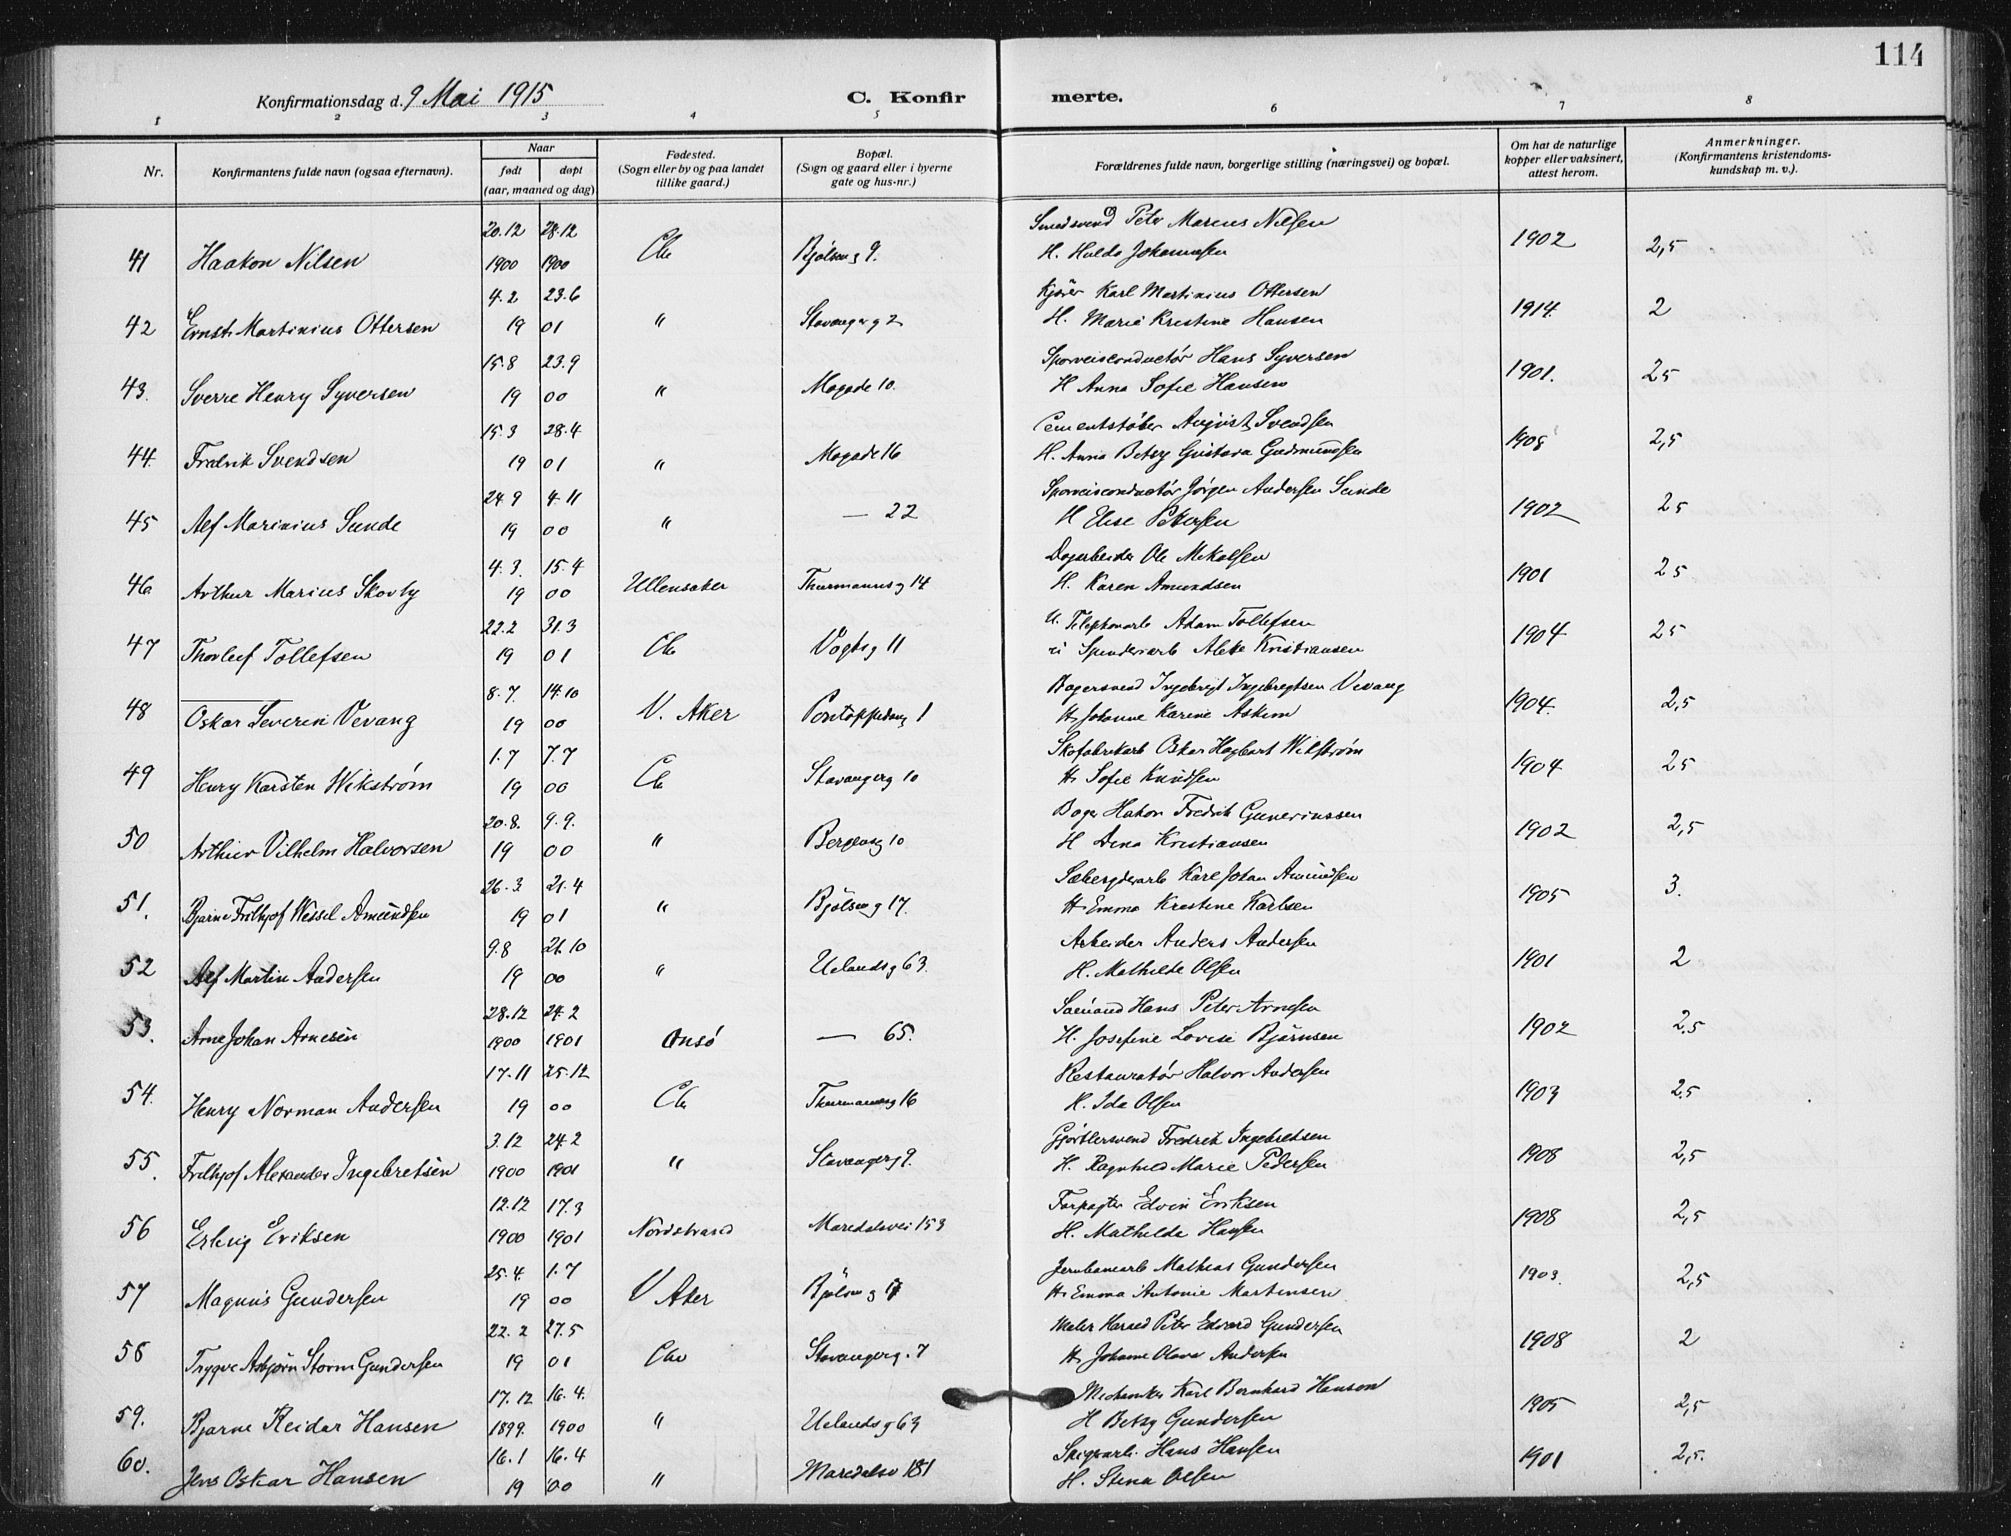 114
Konfirmationsdag d. 9 Mai 1915
C. Konfir merte.
1 2 3 4 5 6 7 8
Nr.
Konfirmantens fulde navn (ogsaa efternavn).
Naar
født døpt
(aar, maaned og dag)
Fødested.
(Sogn eller by og paa landet
tillike gaard.)
Bopæl.
(Sogn og gaard eller i byerne
gate og hus-nr.)
Forældrenes fulde navn, borgerlige stilling (næringsvei) og bopæl.
Om hat de naturlige
kopper eller vaksinert,
attest herom.
Anmerkninger.
(Konfirmantens kristendoms-
kundskap m. v.).
20.12 28.12 Smedsvend Petr Marcus Nilsen
41 Haakon Nilsen 1900 1900 Chr Bjølseng 9. H. Hulda Johannesen 1902 2,5
4.2 23.6 Kjører Karl Martinius Ottersen
42 Ernst Martinius Ottersen 19 01 " Stavangerg 2 H. Marie Kristine Hansen 1914 2
15.8 23.9 Sporveisconductør Hans Syversen
43. Sverre Henry Syversen 19 00 " Mogade 10. H Anna Sofie Hansen 1901. 25
15.3 28.4 Cementstøber August Svendsen
44. Fredrik Svendsen 19 01 " Mogade 16 H. Anna Betsy Gustava Gudmundsen 1905 2,5
24.9 4.11 Sporveisconductør Jörgen Andersen Sunde
45 Alf Marinius Sunde 19 00 " — 22 H Elise Petersen 1902 25
4.3. 15.4 Dagarbeider Ole Mikalsen
46. Arthur Marius Skovly 19 00 Ullensaker Thurmannsg 14 H. Karen Amundsen 1901 25
22.2 31.3 U. Telefonarb Adam Tollefsen
47 Thorleif Tollefsen 19 01 Chr Vogtsg 11 Spinderiarb Aleke Kristiansen 1904 25
8.7. 14.10 Bagersvend Ingebrigt Ingebregtsen Vevang
48 Oskar Severin Vevang 19 00 V. Aker Pontoppidang 1 H. Johanne Karine Askim 1904. 2,5
1.7 7.7 Skofabrikarb Oskar Hagbart Wikstrøm
49 Henry Karsten Wikstrøm 19 00 Chr Stavangerg 10 H. Sofie Knudsen 1904 25
20.8. 9.9. Bager Hakon Fredrik Gunerinssen
50 Arthur Vilhelm Halvorsen 19 00 " Bergensg 10 H Dina Kristiansen 1902 2,5
26.3. 21.4 Karl Johan Amundsen
51. Bjarne Fridtjof Wessel Amundsen 19 01 " Bjølseng 17. H. Emma Kristine Karlsen 1905 3.
9.8 21.10 Arbeider Anders Andersen
52 Alf Martin Andersen 19 00 " Uelandsg 63. H. Mathilde Olsen 1901 2
28.12 24.2 Sømand Hans Peter Arnesen
53. Arne Johan Arnesen 1900 1901 Onsö — 65. H. Josefine Lovise Bjørnsen 1902 2.5
17.11 25.12 Restauratør Halvor Andersen
54. Henry Norman Andersen 19 00 Chr Thurmannsg 16 H. Ida Olsen 1903 2.5
3.12 24.2 Gjørtlersvend Fredrik Ingebretsen
55. Fridtjof Alexander Ingebretsen 1900 1901 " Stavangerg 9. H. Ragnhild Marie Pedersen 1908 2,5
12.12 17.3 Forpagter Edvin Eriksen
56 Erling Eriksen 1900 1901 Nordstrand Maridalsvei 153 H. Mathilde Hansen 1908 2,5
25.4. 1.7 Jernbanearb Mathias Gundersen
57 Magnus Gundersen 19 00 V Aker Bjølseng H. Emma Antonie Martinsen 1903. 2,5
22.2 27.5 Maler Harald Peter Edvard Gundersen
58 Trygve Asbjørn Storm Gundersen 19 01 Chr Stavangerg. 7 H. Johanne Olava Andersen 1908 2
17.12 16.4. Mekaniker Karl Bernhard Hanson
59. Bjarne Reidar Hansen 1899. 1900 " Uelandsg 63 H Betsy Gundersen 1905 2,5
16.1 16.4 Hans Hansen
60. Jens Oskar Hansen 19 00 " Maredalsv 181 H. Stina Olsen 1901 2,5.